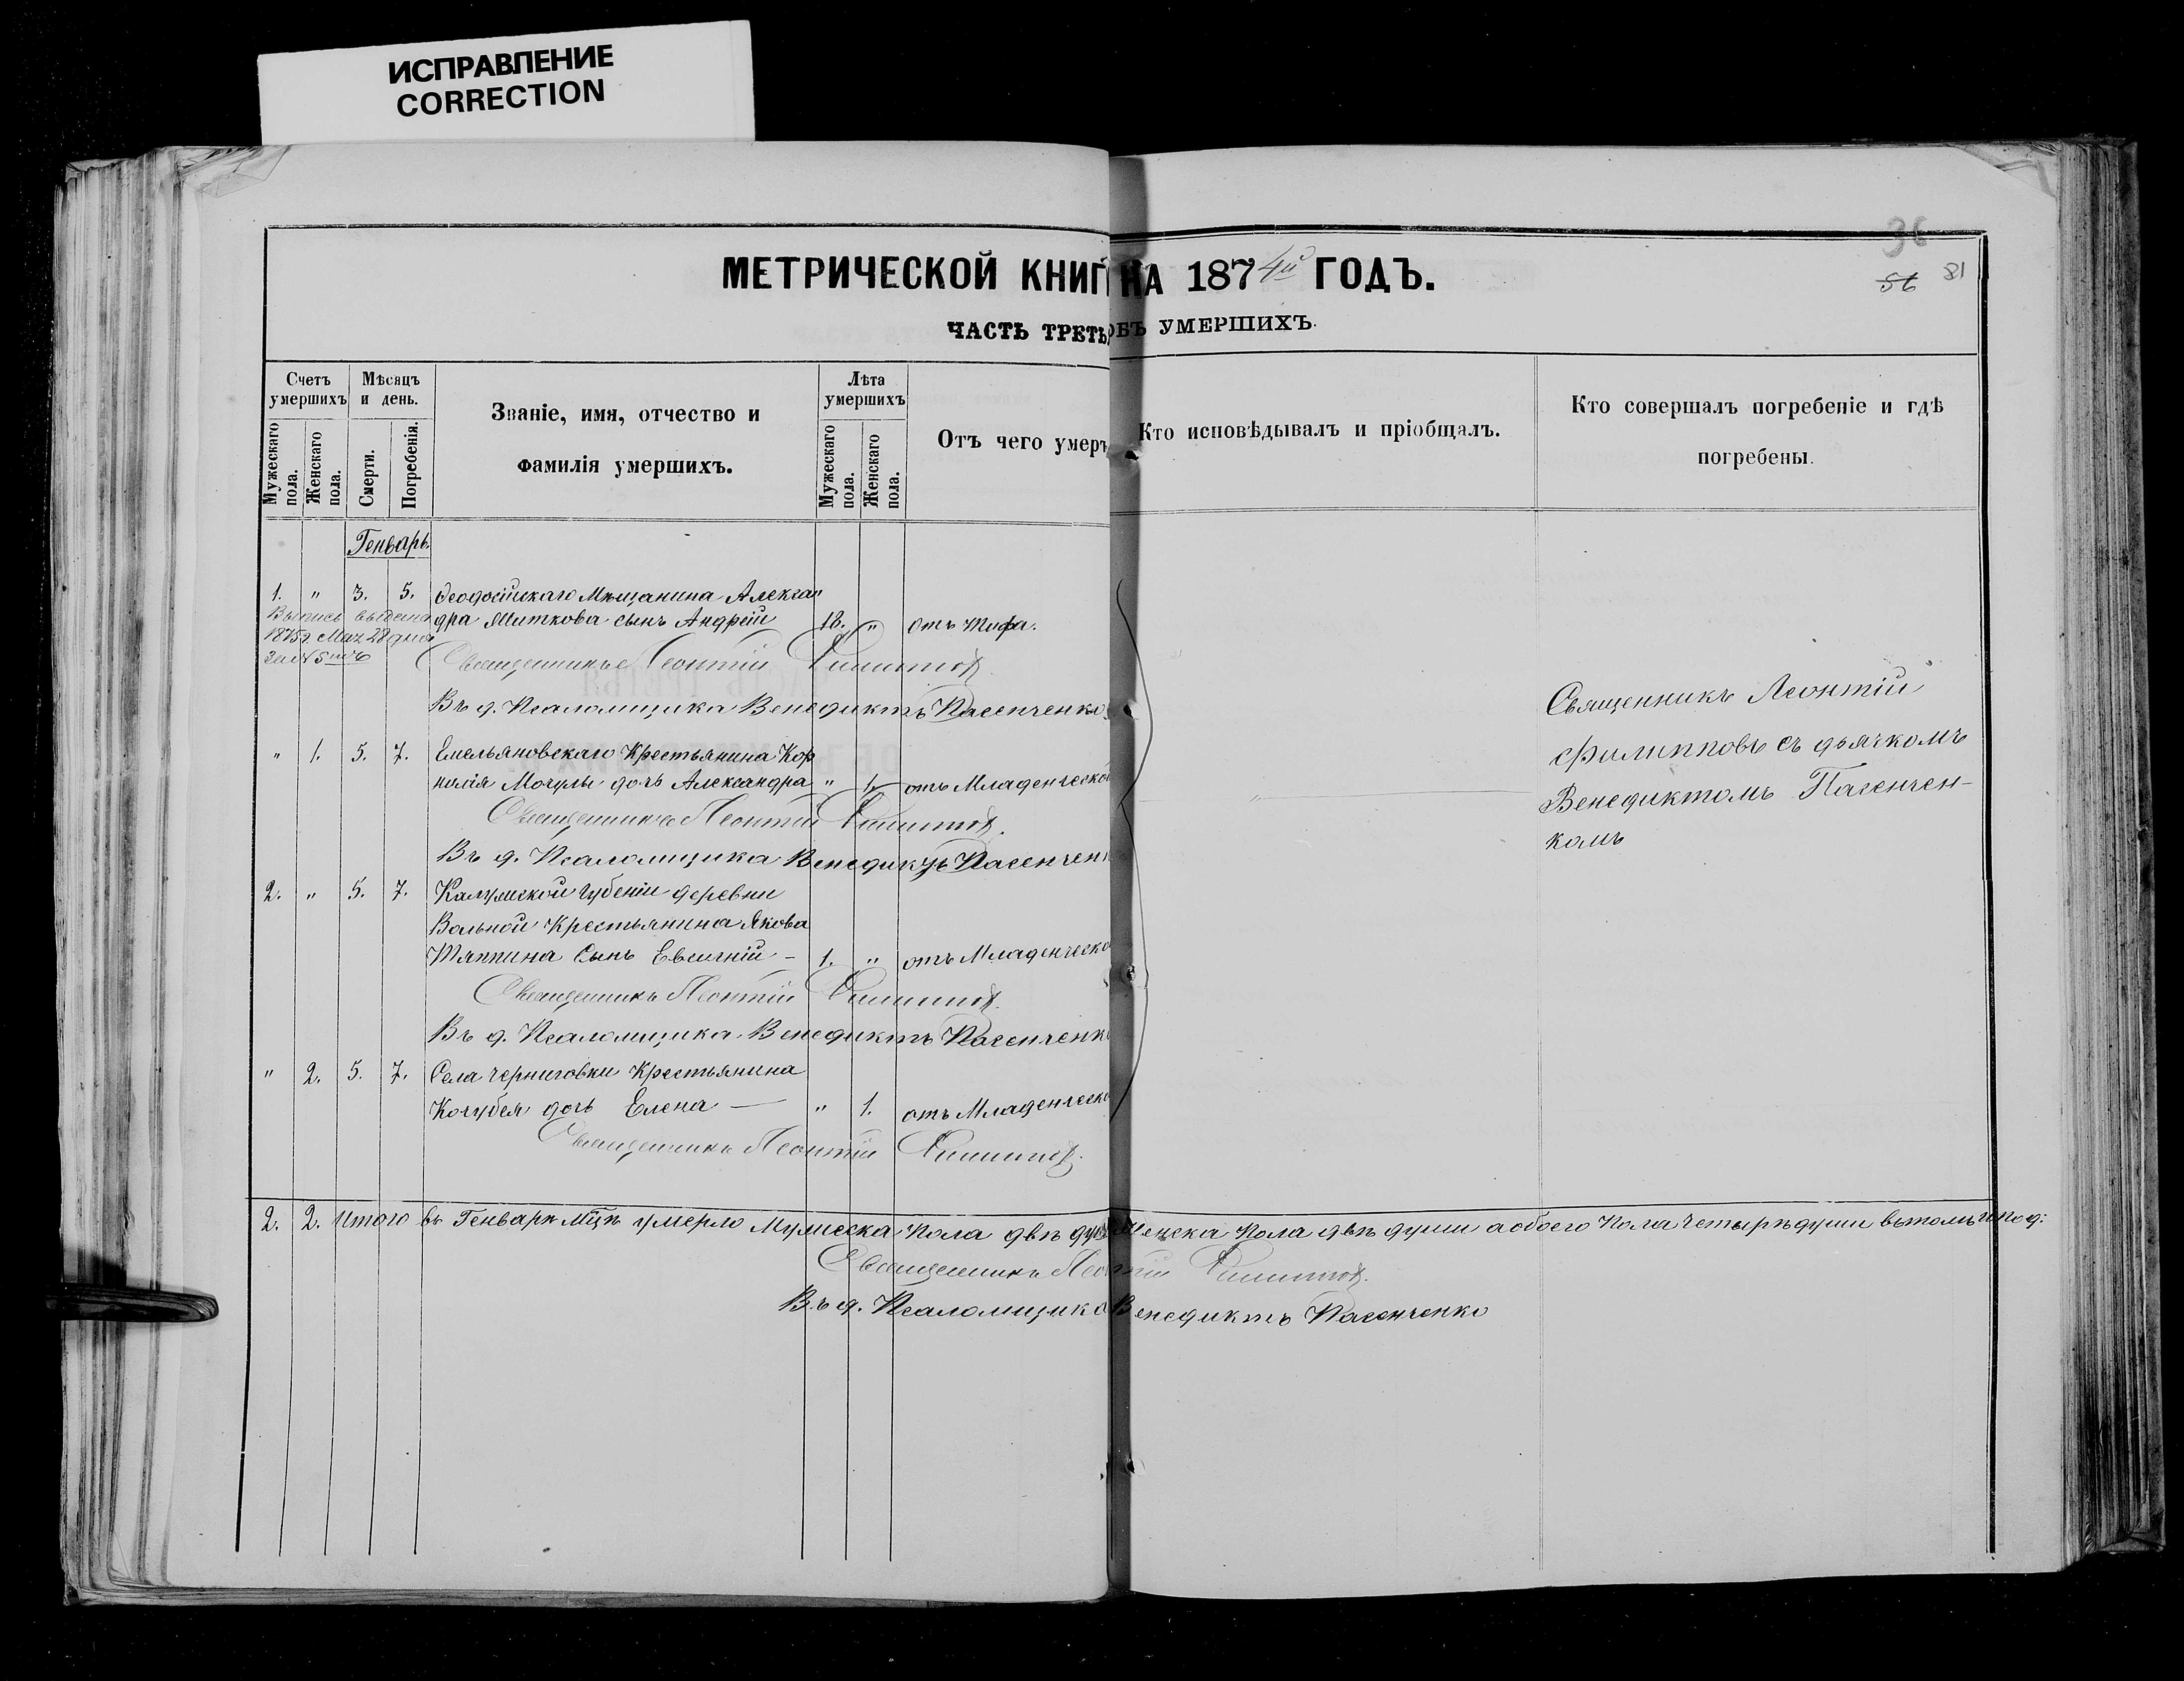 ИСПРАВЛЕНИЕ
CORRECTION
36
56 81
МЕТРИЧЕСКОЙ КНИГ НА 1874й ГОДЪ.
ЧАСТЬ ТРЕТЬ ОБЪ УМЕРШИХЪ.
Счетъ умершихъ
Мѣсяцъ и день.
Званіе, имя, отчество и фамилія умершихъ.
Лѣта умершихъ
Отъ чего умеръ
Кто исповѣдывалъ и пріобщалъ.
Кто совершалъ погребеніе и гдѣ погребены.
Мужескаго пола.
Женскаго пола.
Смерти.
Погребенія.
Мужескаго пола.
Женскаго пола.
Генварь.
1. " 3. 5. Феодосійскаго Мѣщанина Алексан
дра Миткова сынъ Андрей 18. " отъ тифа.
Выпись выдана
1875г Мая 28 дня
за №
Священникъ Леонтій Филиппов
Въ д. Псаломщика Венедиктъ Пасенченко
" 1. 5. 7. Емельяновскаго Крестьянина Кор
нилія Мочулы дочь Александра " 1. отъ Младенческой
Священникъ Леонтій Филиппов.
Въ д. Псаломщика Венедиктъ Пасенчен
2. " 5. 7. Калужской губеніи деревни
Вольной Крестьянина Якова
Тяпкина Сынъ Евсигній - 1. " отъ Младенческо
Священникъ Леонтій Филиппов.
Въ д. Псаломщика Венедиктъ Пасенченк
" 2. 5. 7. Села Черниговки Крестьянина
Кочубея дочь Елена — " 1. отъ Младенческо
Священникъ Леонтій Филиппов.
Священникъ Леонтій
Филипповъ съ дьячкомъ
Венедиктомъ Пасенчен-
комъ
2. 2. Итого въ Генварѣ мцѣ умерло Мужеска пола двѣ душ Женска пола двѣ души а обоего пола четырѣ души
Священникъ Леонтій Филиппов.
Въ д. Псаломщика Венедиктъ Пасенченко